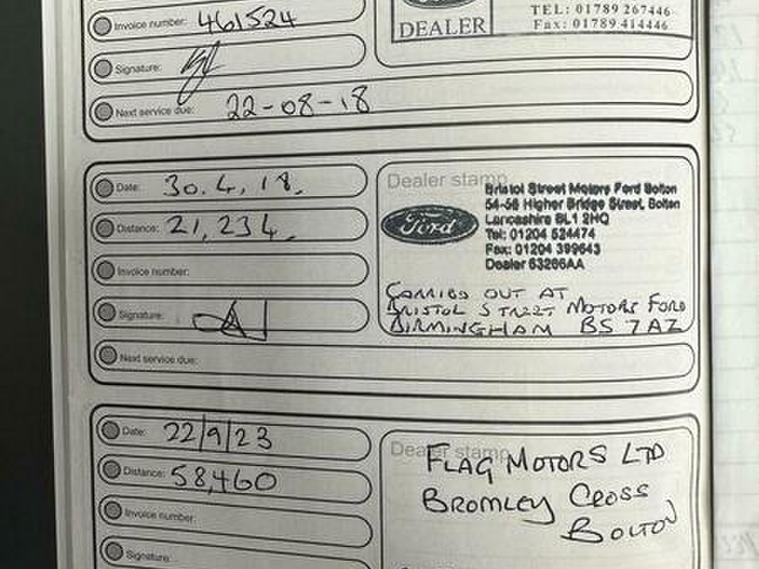 Invoice number: 461524
DEALER
TEL: 01789 267446
Fax: 01789 414446
Signature:
Next service due: 22-08-18
Date: 30.4.18.
Distance: 21,234.
Invoice number:
Signature:
Next service due:
Dealer stamp
Ford
Bristol Street Motors Ford Bolton
54-56 Higher Bridge Street, Bolton
Lancashire BL1 2HQ
Tel: 01204 524474
Fax: 01204 399643
Dealer 63266AA
CARRIED OUT AT
BRISTOL STREET MOTORS FORD
BIRMINGHAM BS 7AZ
Date: 22/9/23
Distance: 58,460
Invoice number:
Signature:
Dealer stamp
FLAG MOTORS LTD
BROMLEY CROSS
BOLTON